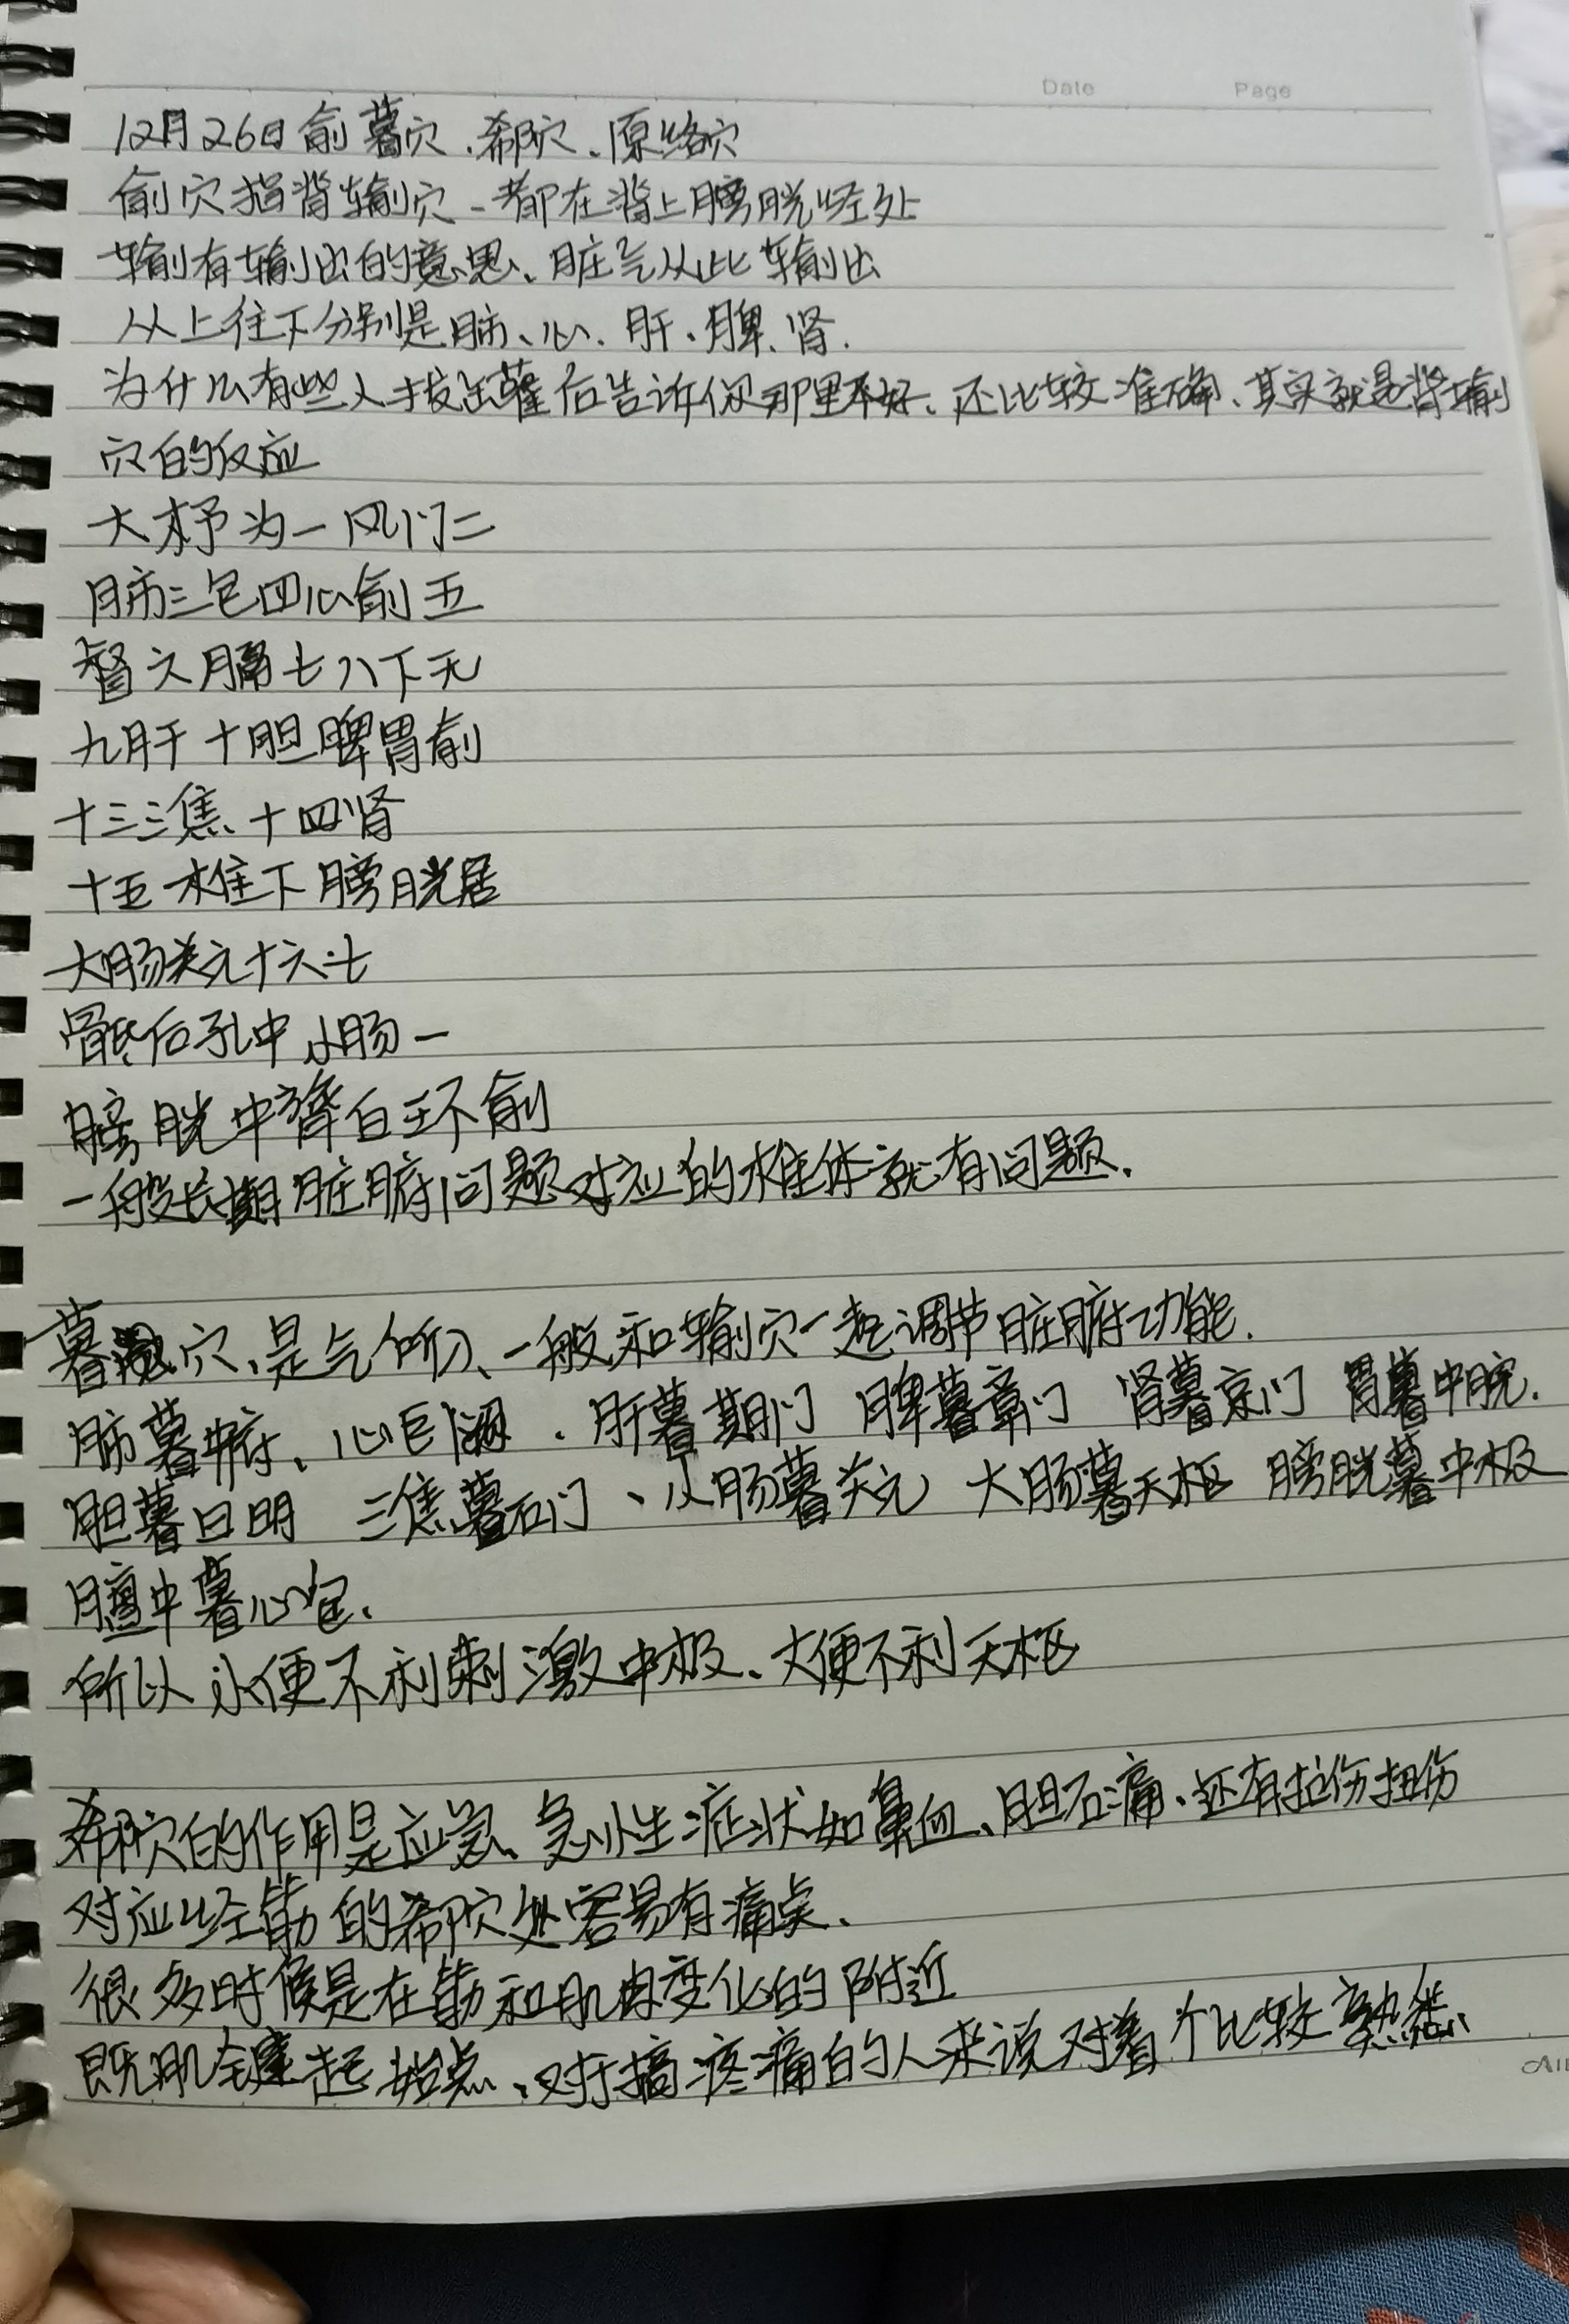 Date Page
12月26日俞暮穴、郗穴、原络穴
俞穴指背输穴-都在背上膀胱经处
输有输出的意思、脏气从此输出
从上往下分别是肺、心、肝、脾、肾.
为什么有些人拔完罐后告诉你那里不好、还比较准确、其实就是背输
穴的反应
大杼为一风门二
肺三包四心俞五
督六膈七八下无
九肝十胆脾胃俞
十三三焦十四肾
十五椎下膀胱居
大肠关元十六七
骶后孔中小肠一
膀胱中膂白环俞
一般长期脏腑问题对应的椎体就有问题.
暮穴、是气所、一般和输穴一起调节脏腑功能.
肺暮中府、心巨阙、肝暮期门 脾暮章门 肾暮京门 胃暮中脘.
胆暮日明 三焦暮石门、小肠暮关元 大肠暮天枢 膀胱暮中极
膻中暮心包.
所以小便不利刺激中极、大便不利天枢
郗穴的作用是应急、急性症状如鼻血、胆石痛、还有拉伤扭伤
对应经筋的郗穴处容易有痛点.
很多时候是在筋和肌肉变化的附近
既肌键起始点、对于搞疼痛的人来说对着个比较熟悉.